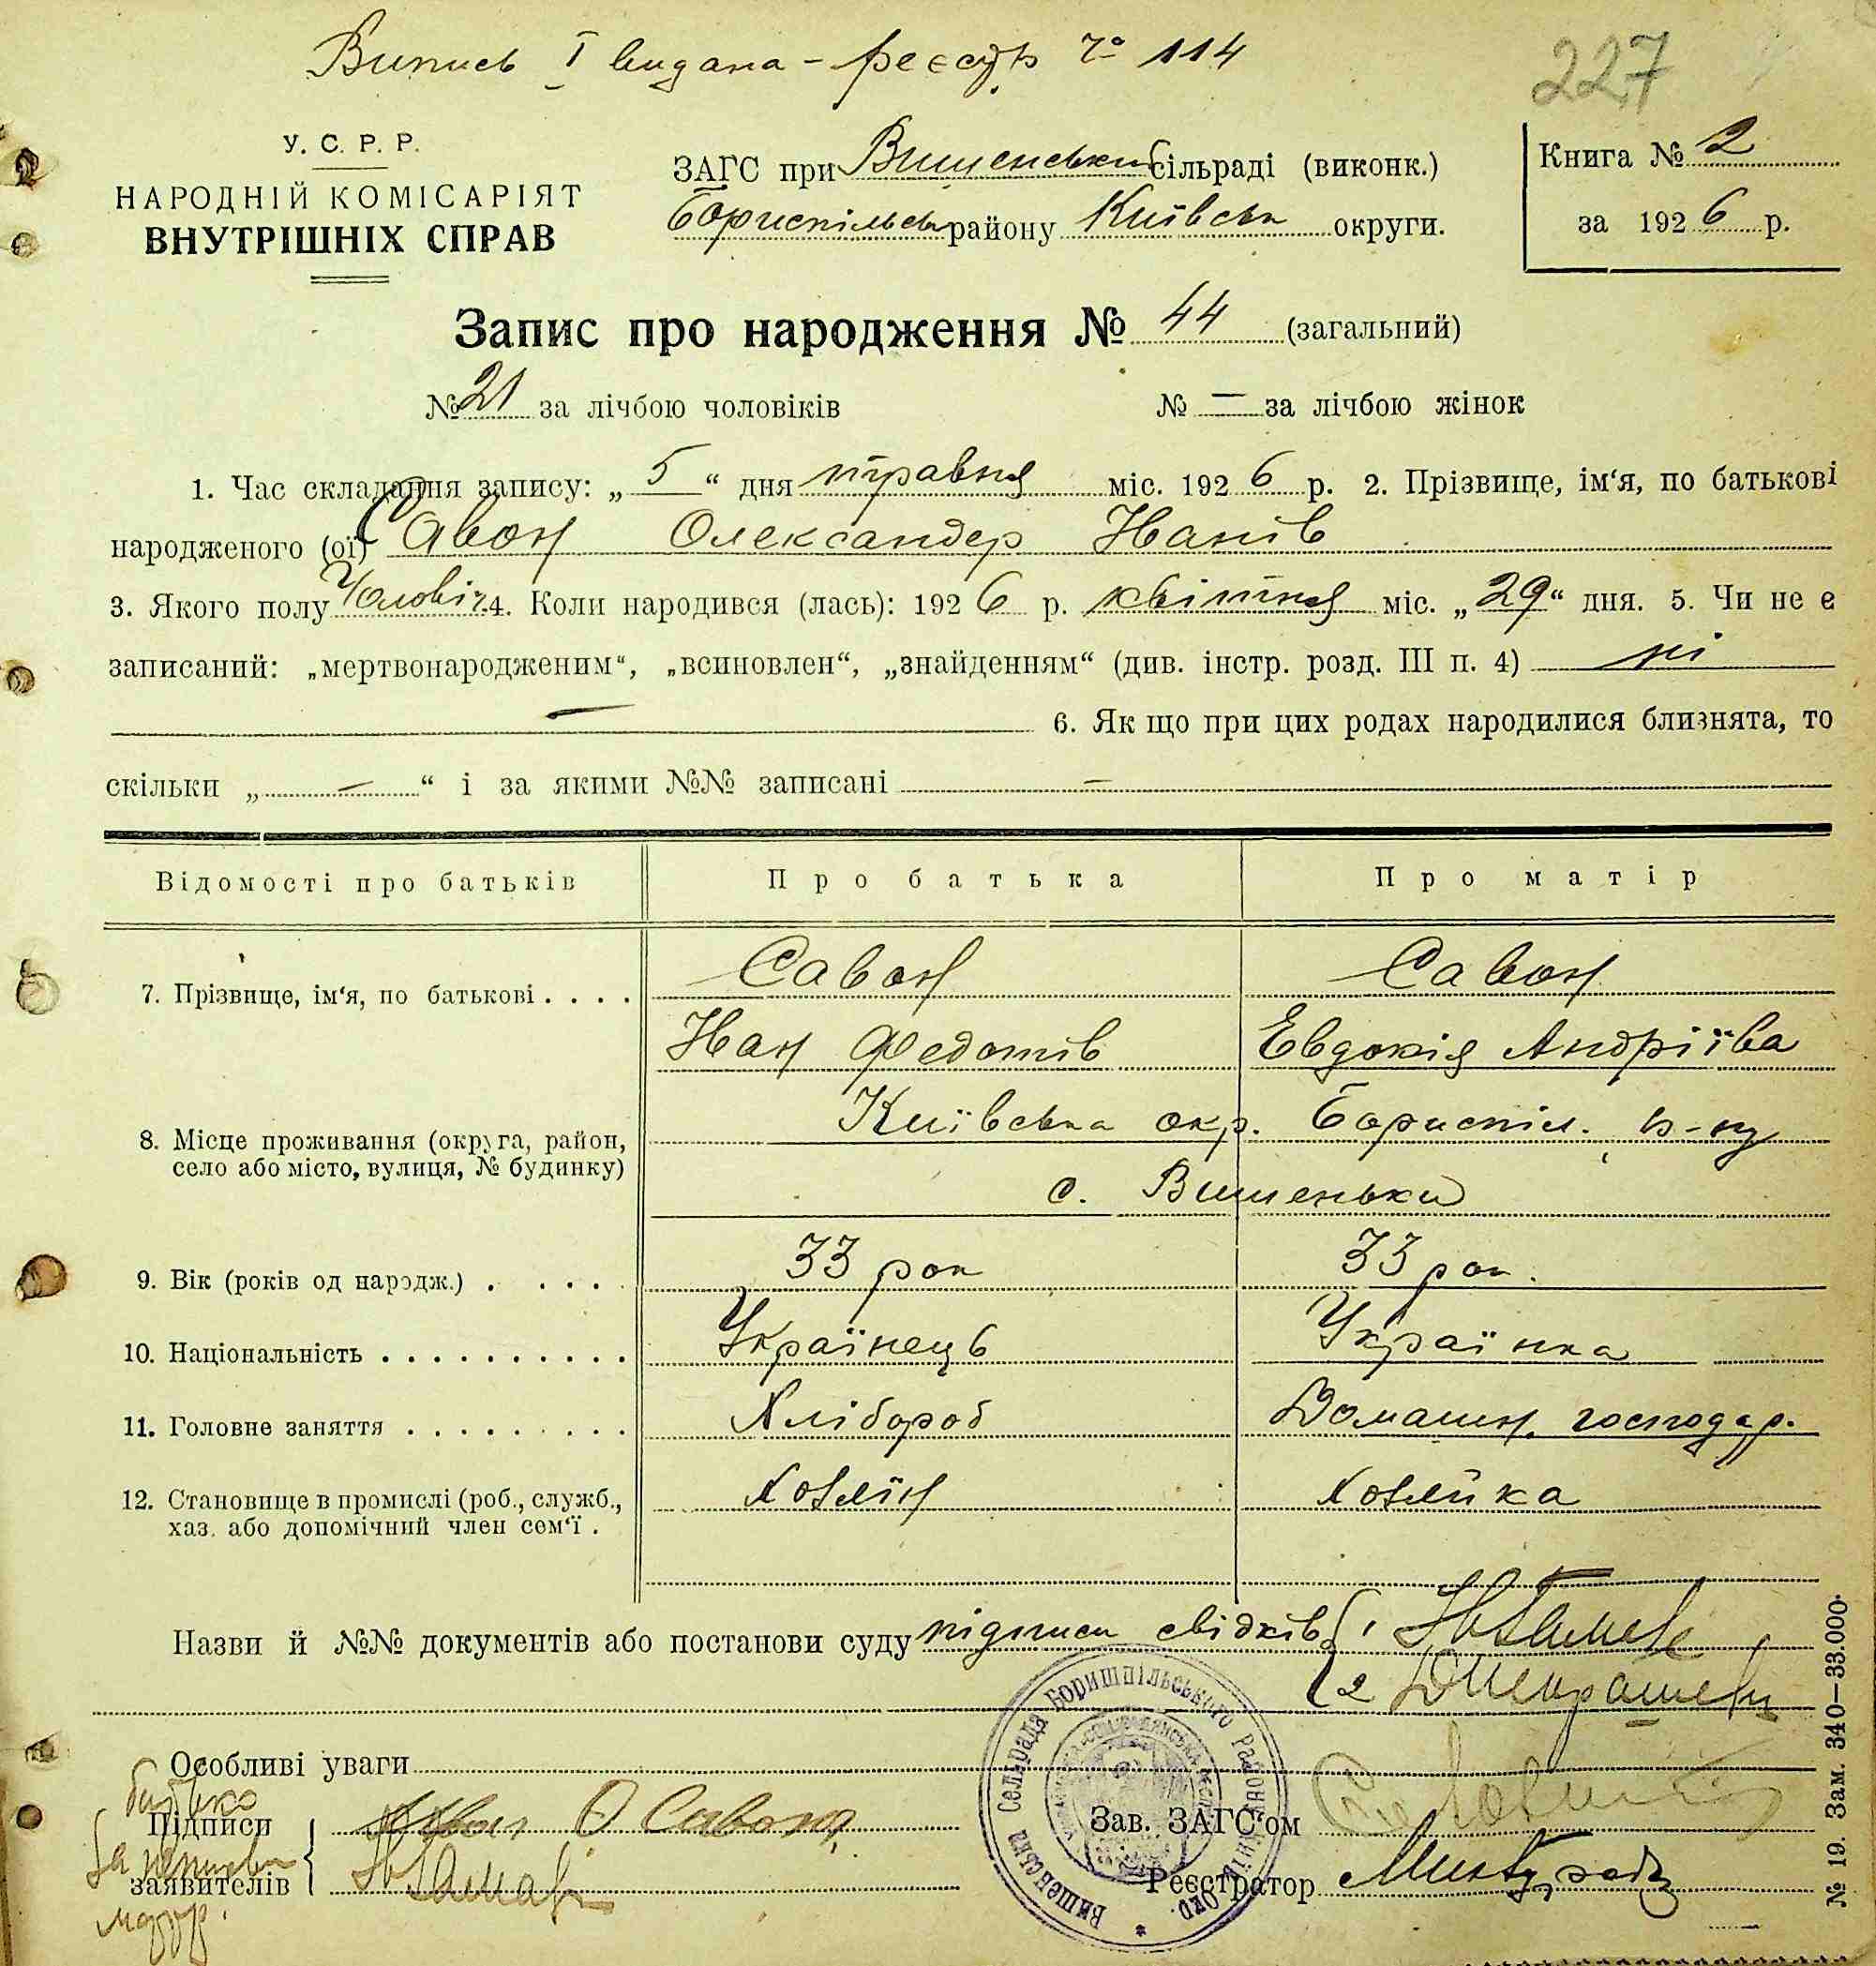 Випись І видана – реєстр № 114
227
У. С. Р. Р.
НАРОДНІЙ КОМІСАРІЯТ
ВНУТРІШНІХ СПРАВ
ЗАГС при Вишенській сільраді (виконк.)
Бориспільськ району Київськ округи.
Книга № 2
за 1926 р.
Запис про народження № 44 (загальний)
№ 21 за лічбою чоловіків № — за лічбою жінок
1. Час складання запису: „ 5 “ дня травня міс. 1926 р. 2. Прізвище, ім‘я, по батькові
народженого (ої) Савон Олександер Іванів
3. Якого полу Чоловіч. 4. Коли народився (лась): 1926 р. квітня міс. „29“ дня. 5. Чи не є
записаний: „мертвонародженим“, „всиновлен“, „знайденням“ (див. інстр. розд. III п. 4) ні
— 6. Як що при цих родах народилися близнята, то
скільки „ — “ і за якими №№ записані —
Відомості про батьків Про батька Про матір
7. Прізвище, ім‘я, по батькові . . . . Савон Савон
Іван Федотів Евдокія Андріїва
8. Місце проживання (округа, район, Київська окр. Бориспіл. р-ну
село або місто, вулиця, № будинку) с. Вишеньки
9. Вік (років од народж.) . . . . 33 рок 33 рок.
10. Національність . . . . . . . . . . Українець Українка
11. Головне заняття . . . . . . . . . Хлібороб Домашн. господар.
12. Становище в промислі (роб., служб., Хозяїн Хозяйка
хаз. або допомічний член сем‘ї .
Назви й №№ документів або постанови суду підписи свідків { 1
2
Особливі уваги
батько
Підписи Іван Ф Савон
заявителів
Зав. ЗАГС‘ом
Реєстратор
Вишенська Селірада Боришпільського Району Київ. Окр.
№ 19. Зам. 340—33.000.